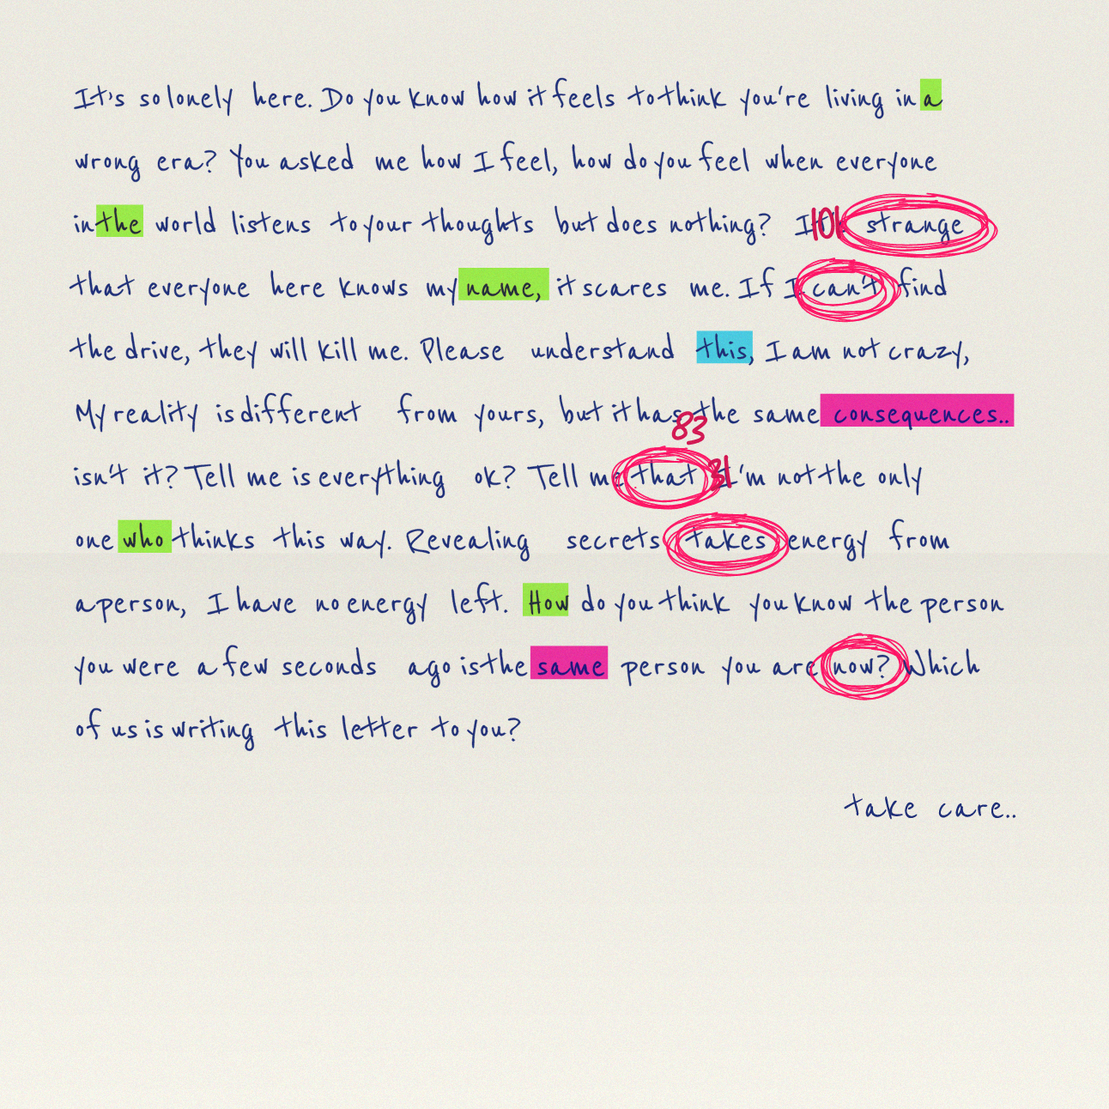 It's so lonely here. Do you know how it feels to think you're living in a
wrong era? You asked me how I feel, how do you feel when everyone
in the world listens to your thoughts but does nothing? It's strange
101
that everyone here knows my name, it scares me. If I can't find
the drive, they will kill me. Please understand this, I am not crazy,
My reality is different from yours, but it has the same consequences..
83
isn't it? Tell me is everything ok? Tell me that I'm not the only
31
one who thinks this way. Revealing secrets takes energy from
a person, I have no energy left. How do you think you know the person
you were a few seconds ago is the same person you are now? Which
of us is writing this letter to you?
take care..